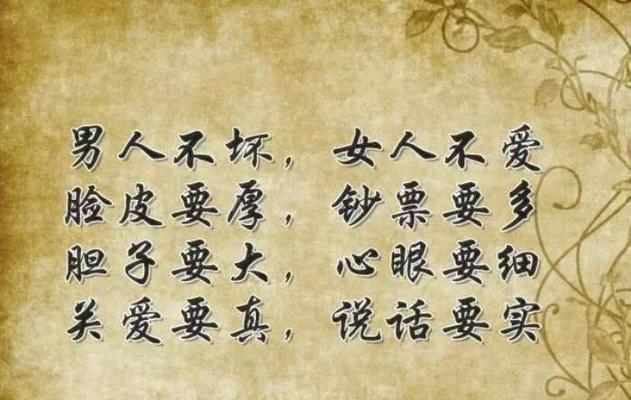 男人不坏，女人不爱
脸皮要厚，钞票要多
胆子要大，心眼要细
关爱要真，说话要实